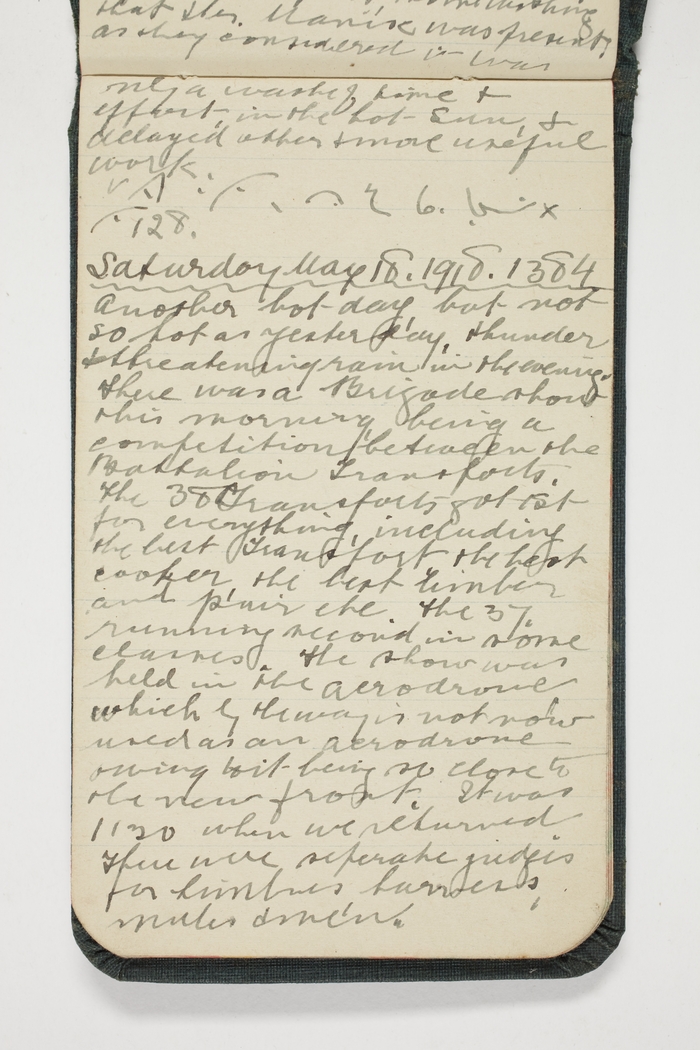 was present,
as they considered it was
only a waste of time &
effort, in the hot Sun, &
delayed other & more useful
work.
6.
128.
Saturday May 18. 1918. 1384
Another hot day, but not
so hot as yesterday, thunder
& threatening rain in the evening.
There was a Brigade show
this morning being a
competition between the
Battalion Transports.
The 38 Transports got 1st
for everything, including
the best Transport the best
cooker, the best limber
and pair etc. The 37.
running second in some
classes. The show was
held in the aerodrome
which by the way is not now
used as an aerodrome
owing to it being so close to
the new front. It was
1130 when we returned
There were seperate judges
for limbers harness,
mules & men.